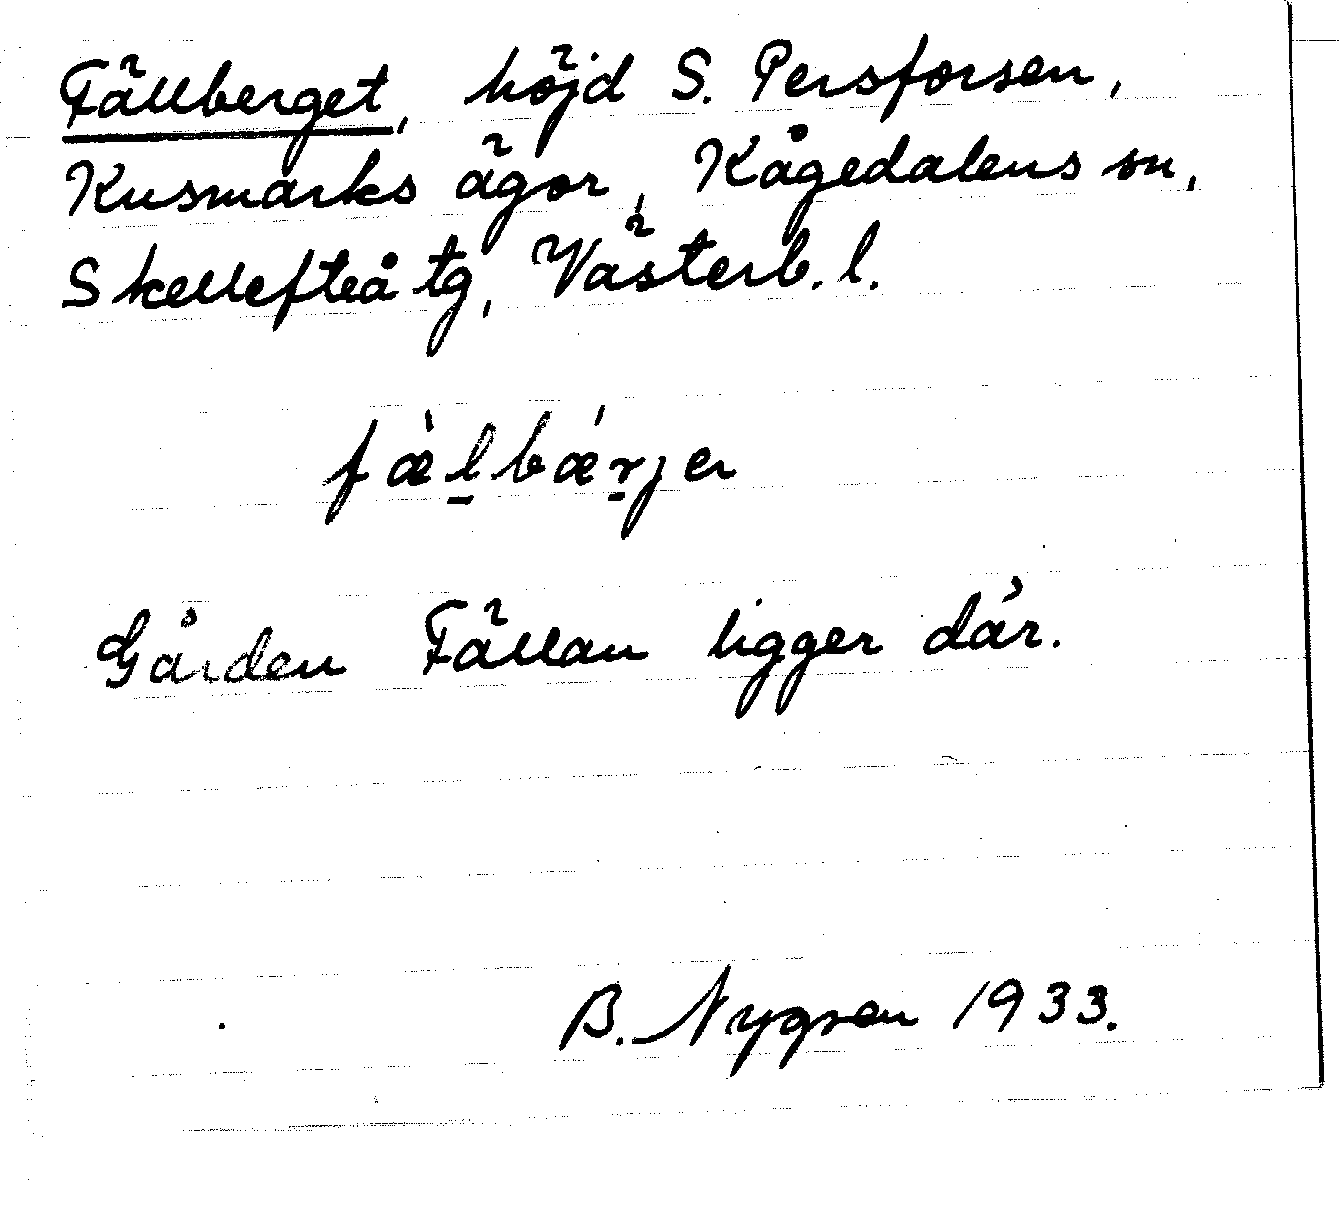 Fällberget, höjd S. Persforsen,
Kusmarks ägor, Kågedalens sn,
Skellefteå tg, Västerb. l.
fæ̀l̲bǽr̲jer
Gården Fällan ligger där.
B. Nygren 1933.